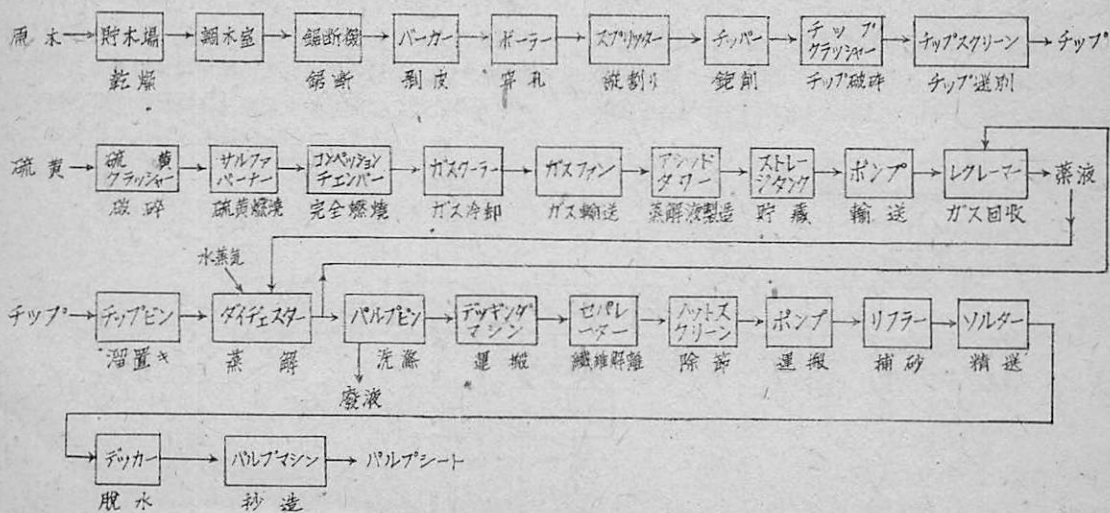 原木 貯木場 調木室 鋸断機 バーカー ボーラー スプリッター チッパー チップクラッシャー チップスクリーン チップ
乾燥 鋸断 剥皮 穿孔 縦割り 鉋削 チップ破砕 チップ送別
硫黄 硫黄クラッシャー サルファバーナー コンベッションチェンバー ガスクーラー ガスファン アシッドタワー ストレージタンク ポンプ レクレーマー 蒸液
破砕 硫黄燃焼 完全燃焼 ガス冷却 ガス輸送 蒸解液製造 貯蔵 輸送 ガス回收
水蒸気
チップ チップビン ダイヂェスター パルプピン デッギングマシン セパレーター ハットスクリーン ポンプ リフラー ソルター
溜置き 蒸解 洗滌 運搬 繊維解離 除節 運搬 補砂 精送
廃液
デッカー パルプマシン パルプシート
脱水 抄造